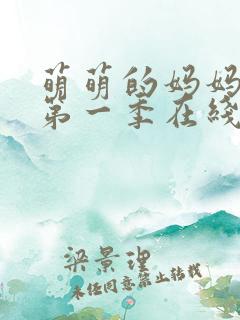 萌萌的妈妈
第一季在线
梁景理
未经同意禁止转载